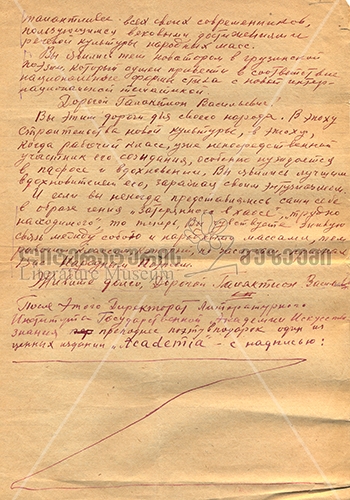 талантливее всех своих современников,
пользующимся вековыми достижениями
речевой культуры народных масс.
Вы явились тем новатором в грузинской
поэзии, который сумел привести в соответствие
национальные формы стиха с новой интер-
национальной тематикой.
Дорогой Галактион Васильевич
Вы этим дороги для своего народа. В эпоху
строительства новой культуры, в эпоху,
когда рабочий класс, уже непосредственный
участник его созидания, особенно нуждается
в пафосе и вдохновении, Вы явились лучшим
вдохновителем его, заражая своим энтузиазмом.
И если вы некогда представлялись сами себе
в образе гения „Затерянного в хаосе", „трудно
находимого", то теперь Вы чувствуете живую
связь между собою и народными массами, тем
Literature Museum
Живите долго, Дорогой Галактион
После этого Директорат Литературного
Института Государственной Академии Искусство-
знания преподнес поэту в подарок один из
ценных изданий „Academia" с надписью: